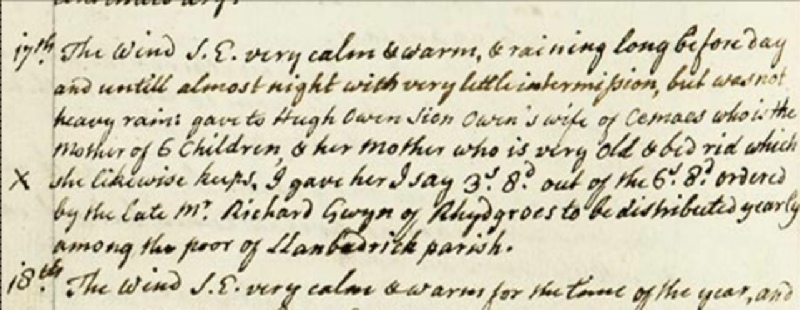 17th. The Wind S.E. very calm & warm, & raining long before day
and untill almost night with very little intermission, but was not
heavy rain: gave to Hugh Owen Sion Owen's wife of Cemaes who is the
Mother of 6 Children, & her Mother who is very old & bed rid which
X she likewise keeps, I gave her I say 3s. 8d. out of the 6s. 8d. ordered
by the late Mr. Richard Gwyn of Rhydgroes to be distributed yearly
among the poor of Llanbadrick parish.
18th. The Wind S.E. very calm & warm for the time of the year, and